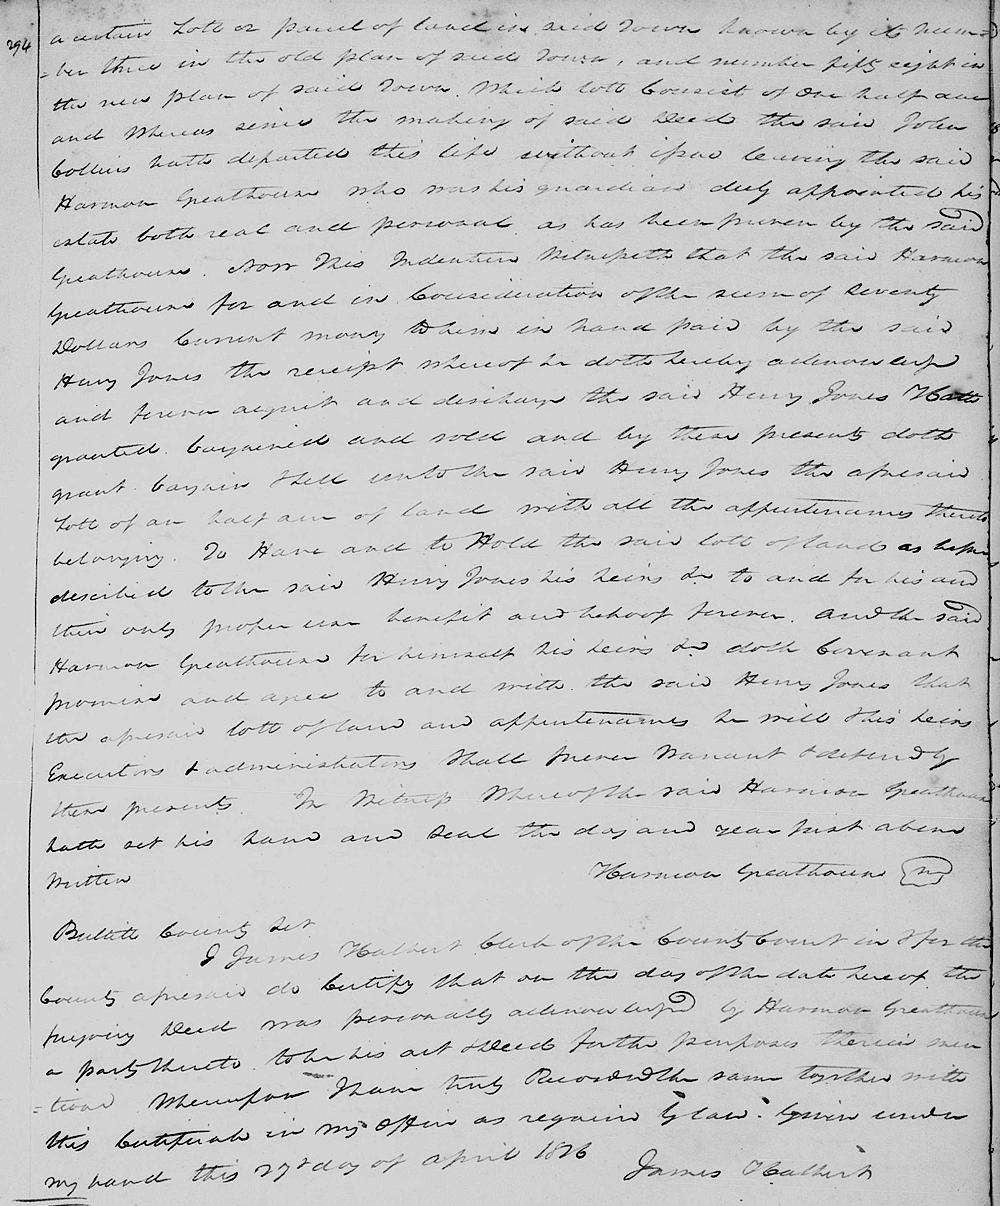 294
a certain Lott or parcel of land in said Town known by it num=
=ber three in the old plan of said Town, and number fifty eight in
the new plan of said Town. Which lott Consist of One half acre
and Whereas since the making of said Deed the said John
Collins hath departed this life without issue leaving the said
Harmon Greathouse who was his guardian duly appointed his
estate both real and personal as has been proven by the said
Greathouse. Now This Indenture Witnesseth that the said Harmon
Greathouse for and in Consideration of the sum of Seventy
Dollars Current money to him in hand paid by the said
Henry Jones the receipt whereof he doth hereby acknowledge
and forever acquit and discharge the said Henry Jones Hath
granted bargained and sold and by these presents doth
grant bargain & sell unto the said Henry Jones the aforesaid
Lott of an half acre of land with all the appurtenances thereto
belonging. To Have and to Hold the said lott of land as before
described to the said Henry Jones his heirs &c to and for his and
their only proper use benefit and behoof forever. and the said
Harmon Greathouse for himself his heirs &c doth Covenant
promise and agree to and with the said Henry Jones that
the aforesaid lott of land and appurtenances he will & his heirs
Executors & administrators Shall forever Warrant & defend by
these presents. In Witness Whereof the said Harmon Greathouse
hath set his hand and Seal the day and year first above
Written
Harmon Greathouse
Bullitt County Sct
I James Halbert Clerk of the County Court in & for the
County aforesaid do Certify that on the day of the date hereof the
foregoing Deed was personally acknowledged by Harmon Greathouse
a party thereto to be his act & Deed for the purposes therein men
=tiond Whereupon I have truly Recorded the same together with
this Certificate in my office as required by law. Given under
my hand this day of April 1816
James Halbert